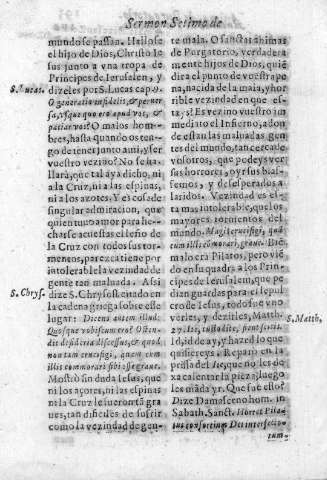 Sermon Setimo de
mundo se passan. Hallose
el hijo de Dios, Christo Ie
sus junto a vna tropa de
Principes de Ierusalen, y
dizeles por S. Lucas cap. 9.
S. Lucas.
O generatio infidelis, & perver
sa, vsque quo ero apud vos, &
patiar vos? O malos hom-
bres, hasta quando os ten-
go de tener junto a mi, y ser
vuestro vezino? No se ha-
llarà, que tal aya dicho, ni
a la Cruz, ni a las espinas,
ni a los azotes. Y es cosa de
singular admiracion, que
quien tuuo amor para he-
charse acuestas el leño de
la Cruz con todos sus tor-
mentos, parezca tiene por
intolerable la vezindad de
gente tan maluada. Assi
dize S. Chrysost. citado en
S. Chrys.
la cadena griega, sobre este
lugar: Dicens autem illud:
Quosque vobiscum ero? Osten-
dit desiderium discessus, & quod
non tam crucifigi, quam cum
illis commorari sibi esset graue.
Mostrò sin duda Iesus, que
ni los açotes, ni las espinas
ni la Cruz le fueron tã gra
ues, tan dificiles de sufrir
como la vezindad de gen-
te mala. O sanctas animas
de Purgatorio, verdadera
mente hijos de Dios, quiẽ
dira el punto de vuestra pe
na, nacida de la mala, y hor
rible vezindad en que es-
ta ys! Es vezino vuestro in
mediato el Infierno, adon
de estan las maluadas gen-
tes del mundo, tan cerca de
vosotros, que podeys ver
sus horrores, oyr sus blas-
femos, y desesperados a
laridos. Vezindad es es-
ta mas intolerable, que los
mayores tormentos del
mundo. Magis crucifigi, quã
cum illis commorari, graue. Biẽ
malo era Pilatos, pero vié
do en quadra a los Prin-
cipes de Ierusalem, que pe
dian guardas para el sepul
cro de Iesus, todo fue vo-
zeries, y dezirles, Matth.
S. Matth.
27. Ite, custodite, sicut scitis.
Id, id de ay, y hazed lo que
quisiereys. Reparò en la
priessa del Ite, que no les de
xa calentar la pieça, luego
les mãda yr. Que fue esto?
Dize Damasceno hom. in
Sabath. Sanct. Horret Pila
tus consortium Dei interfecto
rum.